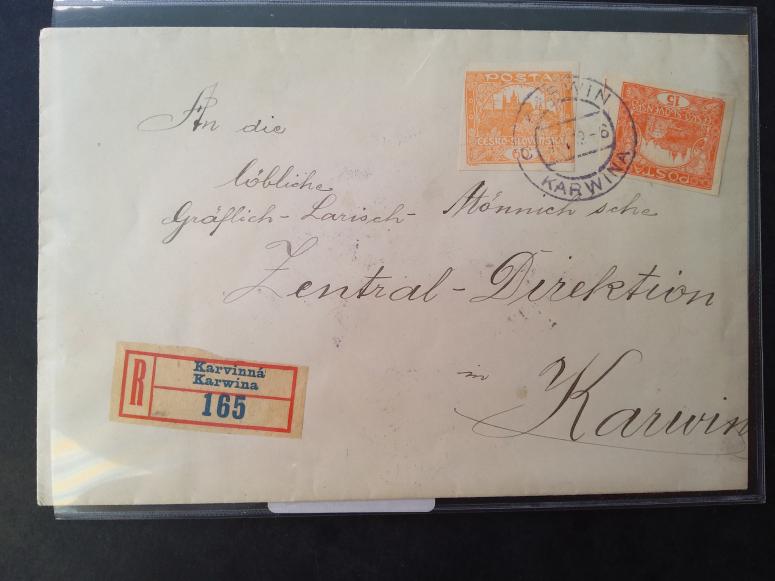 POSTA
ČESKO-SLOVENSKÁ
KARWIN
KARWINA
15
POSTA
An die
löbliche
Gräflich-Larisch-Mönnich'sche
Zentral-Direktion
in
Karwin
R
Karvinná
Karwina
165